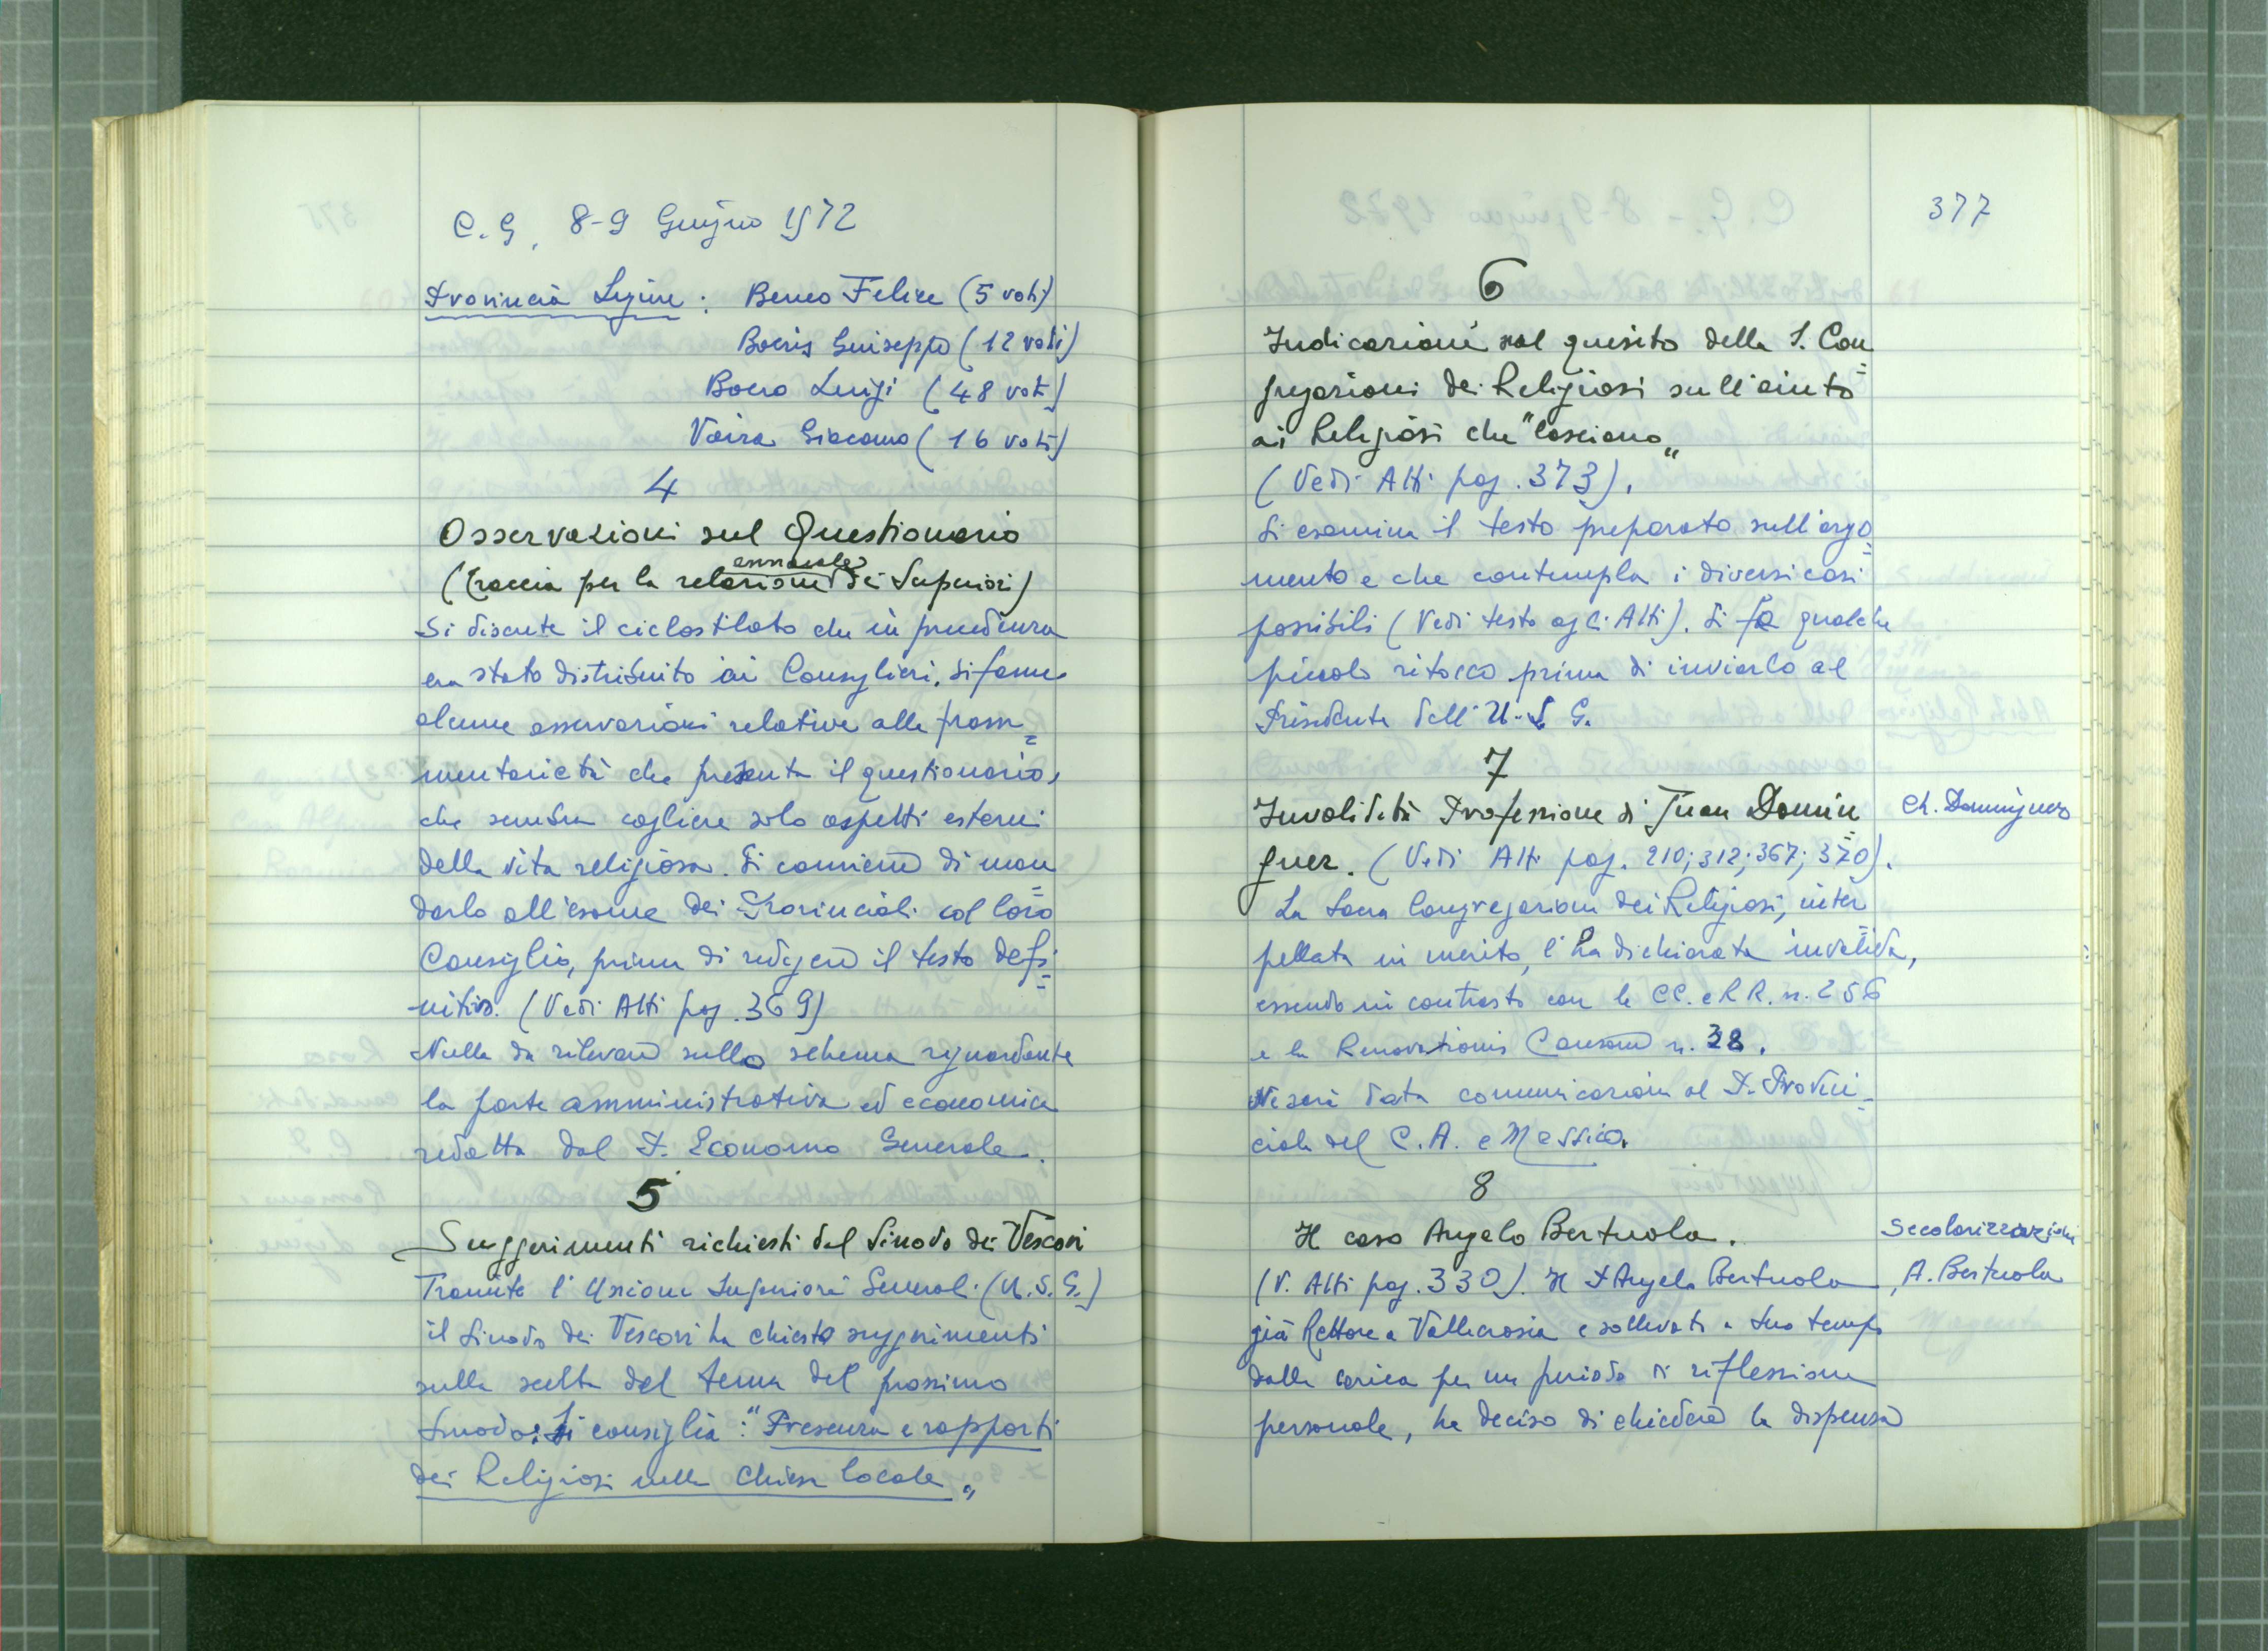 C. G. 8-9 Giugno 1972
Provincia Ligure : Beneo Felice (5 voti)
Boeris Giuseppe (12 voti)
Boero Luigi (48 voti)
Vaira Giacomo (16 voti)
4
Osservazioni sul Questionario
annuale
(traccia per la relazione dei Superiori)
Si discute il ciclostilato che in precedenza
era stato distribuito ai Consiglieri. Si fanno
alcune osservazioni relative alla fram=
mentarietà che presenta il questionario,
che sembra cogliere solo aspetti esterni
della vita religiosa. Si conviene di man=
darlo all'esame dei Provinciali col loro
Consiglio, prima di redigere il testo defi=
nitivo. (Vedi Atti pag. 369)
Nulla da rilevare sullo schema riguardante
la parte amministrativa ed economica
redatta dal P. Economo Generale.
5
Suggerimenti richiesti dal Sinodo dei Vescovi
Tramite l'Unione Superiori Generali (U.S.G.)
il Sinodo dei Vescovi ha chiesto suggerimenti
sulla scelta del tema del prossimo
Sinodo: Si consiglia: "Presenza e rapporti
dei Religiosi nella Chiesa locale"
377
6
Indicazioni sul quesito della S. Con=
gregazioni dei Religiosi sull'aiuto
ai Religiosi che "lasciano"
(Vedi Atti pag. 373).
Si esamina il testo preparato sull'argo=
mento e che contempla i diversi casi
possibili (Vedi testo agli Atti). Si fa qualche
piccolo ritocco prima di inviarlo al
Presidente dell'U.S.G.
7
Invalidità Professione di Juan Domin=
guez. (Vedi Atti pag. 210; 312; 367; 370).
Ch. Dominguez
La Sacra Congregazione dei Religiosi, inter=
pellata in merito, l'ha dichiarata invalida,
essendo in contrasto con le CC. e RR. n. 256
e la Renovationis Causam n. 38.
Ne sarà data comunicazione al P. Provin-
ciale del C.A. e Messico.
8
Il caso Angelo Bertuola.
Secolarizzazioni
(V. Atti pag. 330). Il P. Angelo Bertuola,
A. Bertuola
già Rettore a Vallecrosia e sollevato a suo tempo
dalla carica per un periodo di riflessione
personale, ha deciso di chiedere la dispensa